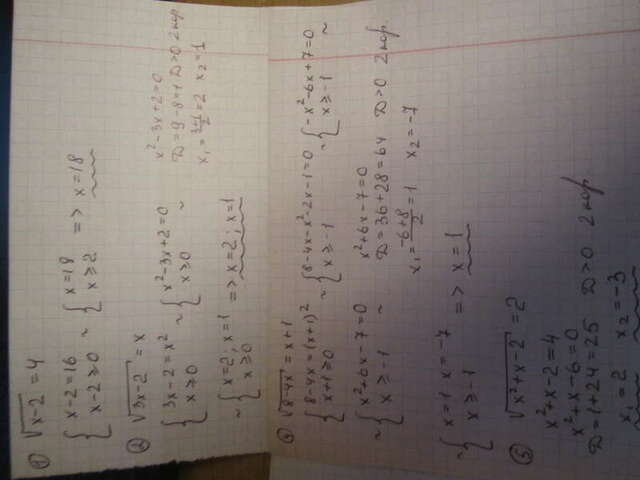 1) √x-2 = 4
{ x-2=16
x-2≥0 ~ { x=18
x≥2 => x=18
2) √3x-2 = x
{ 3x-2=x²
x≥0 ~ { x²-3x+2=0
x≥0 ~
x²-3x+2=0
D=9-8=1 D>0 2 кор.
x₁=3+1/2=2 x₂=1
~ { x=2; x=1
x≥0 => x=2; x=1
4) √8-4x = x+1
{ 8-4x=(x+1)²
x+1≥0 ~ { 8-4x-x²-2x-1=0
x≥-1 ~ { -x²-6x+7=0
x≥-1 ~
~ { x²+6x-7=0
x≥-1 ~
x²+6x-7=0
D=36+28=64 D>0 2 кор.
x₁=-6+8/2=1 x₂=-7
~ { x=1 x=-7
x≥-1 => x=1
5) √x²+x-2 = 2
x²+x-2=4
x²+x-6=0
D=1+24=25 D>0 2 кор
x₁=2 x₂=-3